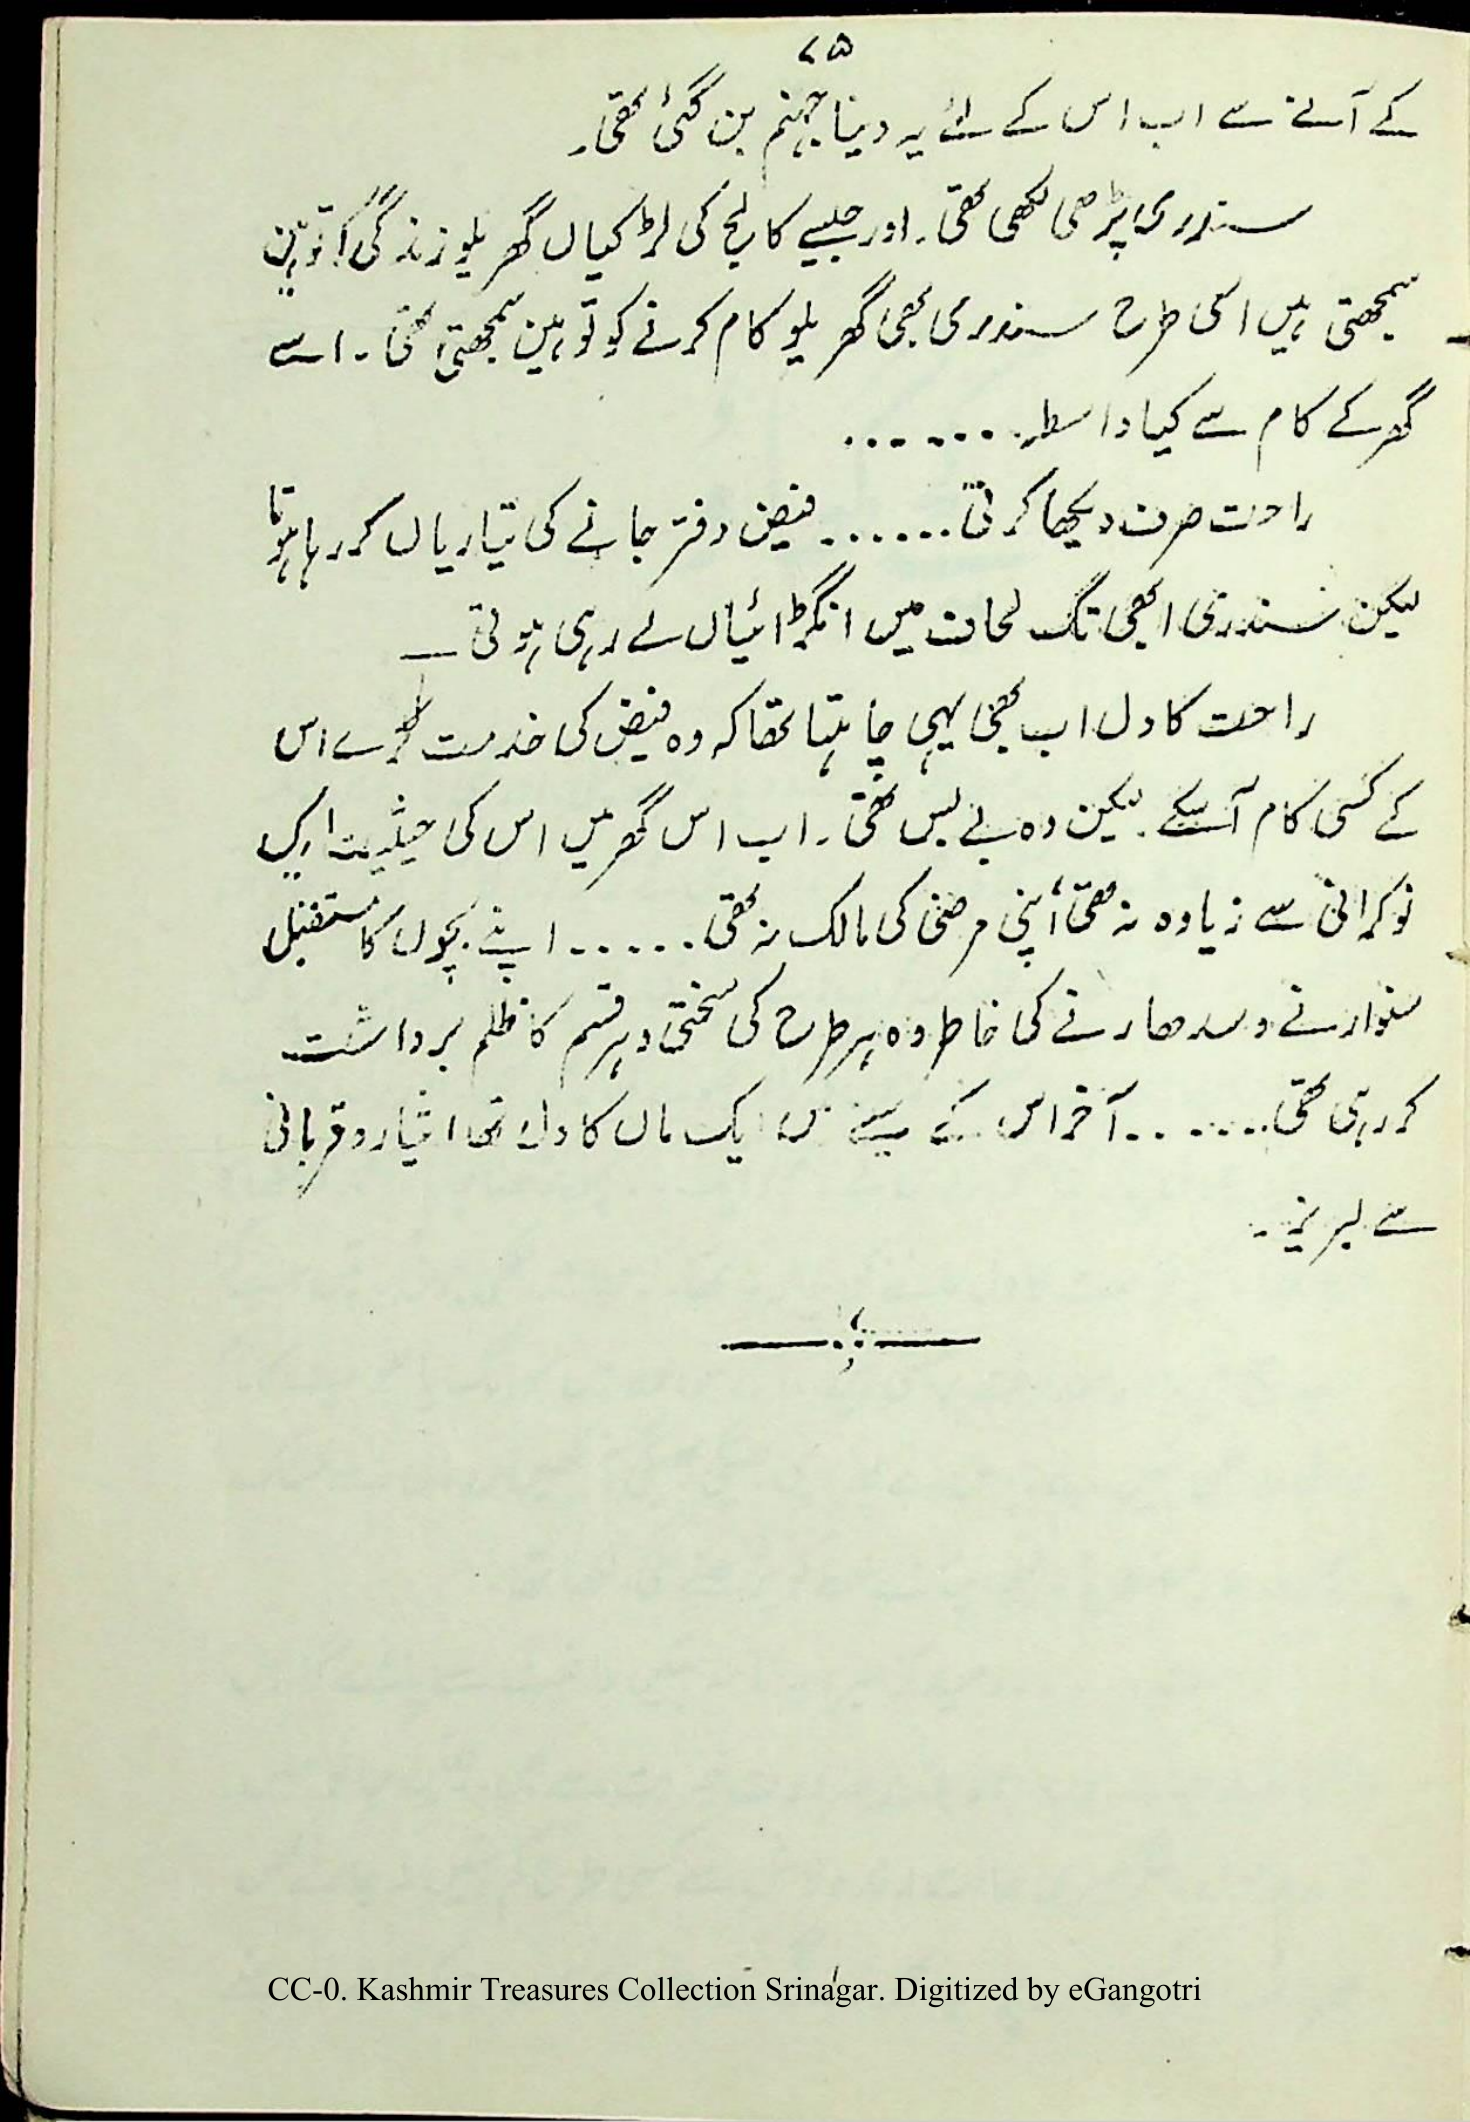 ۷۵
کے آنے سے اب اس کے لئے یہ دنیا جہنم بن گئی تھی۔
سندری پڑھی لکھی تھی۔ اور جیسے کالج کی لڑکیاں گھریلو زندگی کو توہین
سمجھتی ہیں اسی طرح سندری بھی گھریلو کام کرنے کو توہین سمجھتی تھی۔ اسے
گھر کے کام سے کیا واسطہ .......
راحت صرف دیکھا کرتی....... فیض دفتر جانے کی تیاریاں کر رہا ہوتا
لیکن سندری ابھی تک لحاف میں انگڑائیاں لے رہی ہوتی —
راحت کا دل اب بھی یہی چاہتا تھا کہ وہ فیض کی خدمت کرے اس
کے کسی کام آسکے۔ لیکن وہ بے بس تھی۔ اب اس گھر میں اس کی حیثیت ایک
نوکرانی سے زیادہ نہ تھی، اپنی مرضی کی مالک نہ تھی...... اپنے بچوں کا مستقبل
سنوارنے و سدھارنے کی خاطر وہ ہر طرح کی سختی و ہر قسم کا ظلم برداشت
کر رہی تھی....... آخر اس کے سینے میں ایک ماں کا دل تھا ایثار و قربانی
سے لبریز۔
CC-0. Kashmir Treasures Collection Srinagar. Digitized by eGangotri